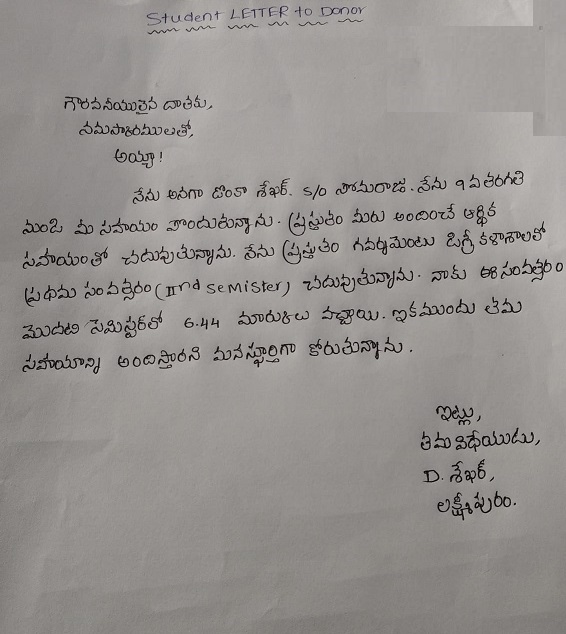 Student LETTER to Donor
గౌరవనీయులైన దాతకు,
నమస్కారములతో,
అయ్యా!
నేను అనగా డొంకా శేఖర్. S/o సోమరాజు. నేను 9వ తరగతి
నుండి మీ సహాయం పొందుతున్నాను. ప్రస్తుతం మీరు అందించే ఆర్థిక
సహాయంతో చదువుతున్నాను. నేను ప్రస్తుతం గవర్నమెంటు డిగ్రీ కళాశాలలో
ప్రథమ సంవత్సరం (IInd semister) చదువుతున్నాను. నాకు ఈ సంవత్సరం
మొదటి సెమిస్టర్‌లో 6.44 మార్కులు వచ్చాయి. ఇకముందు తమ
సహాయాన్ని అందిస్తారని మనస్ఫూర్తిగా కోరుతున్నాను.
ఇట్లు,
తమ విధేయుడు,
D. శేఖర్,
లక్ష్మీపురం.